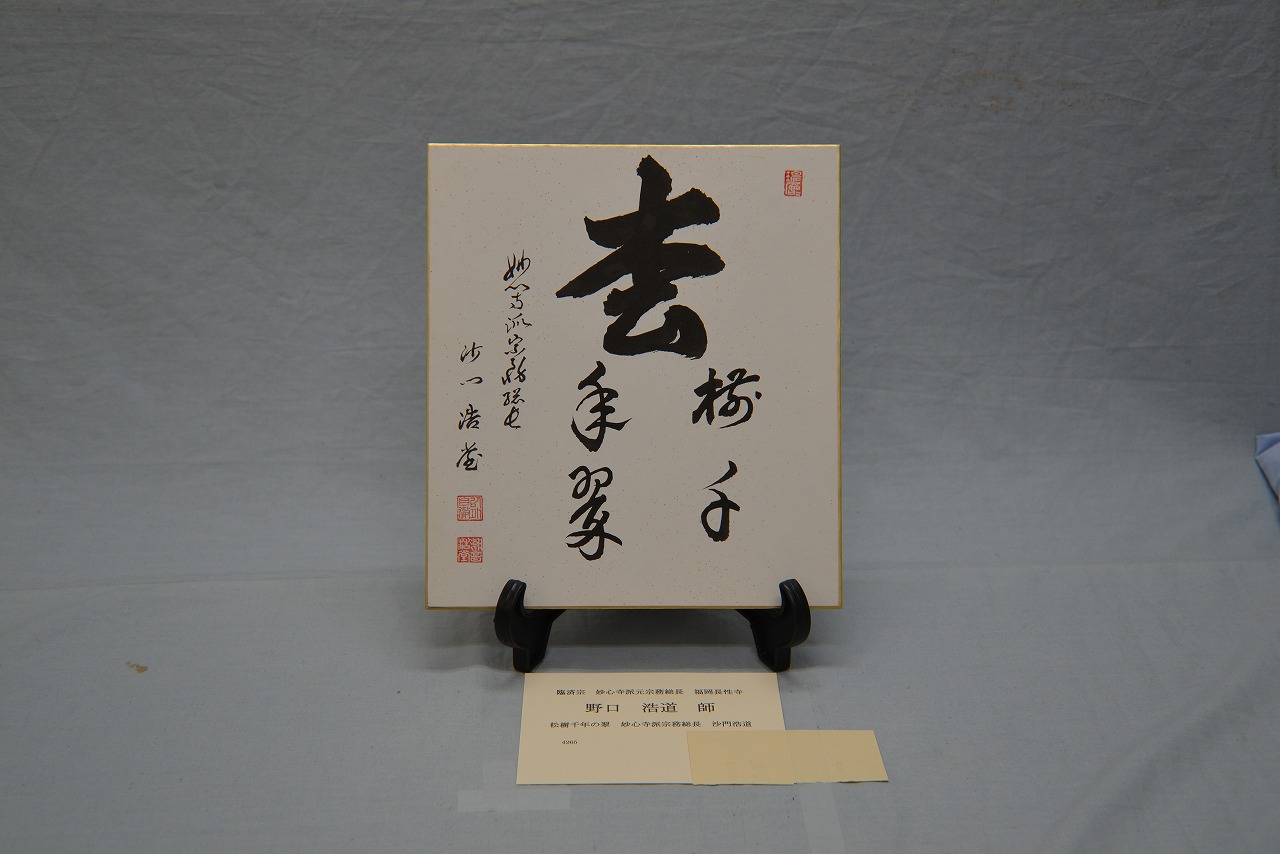 枩
樹千
年翠
妙心寺派宗務総長
沙門浩道
臨済宗　妙心寺派元宗務総長　福岡長性寺
野口　浩道　師
松樹千年の翠　妙心寺派宗務総長　沙門浩道
4265